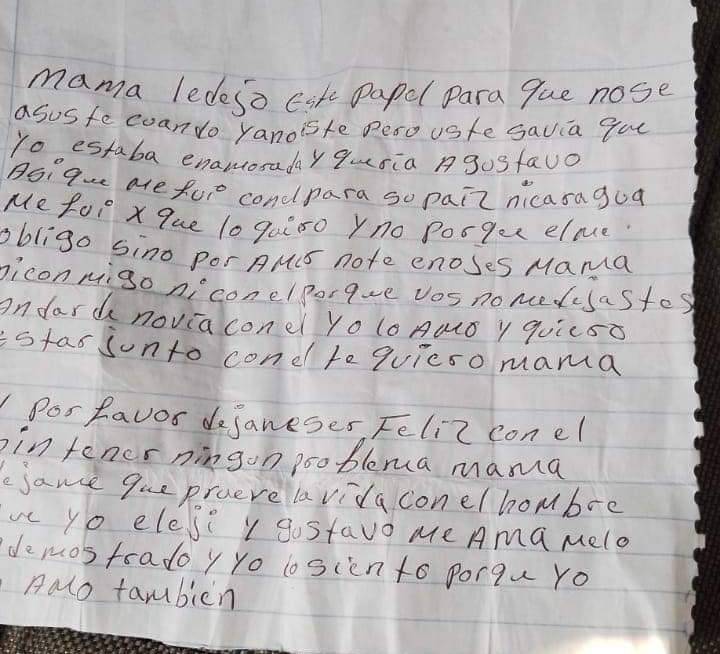 mama ledejo este papel para que nose
asuste cuando yanoiste pero uste savia que
yo estaba enamorada y queria A gustavo
Asi que me fui conelpara su paiz nicaragua
Me foi x que lo quiero y no porque elme
obligo sino por AMor note enojes mama
niconmigo ni conelporque vos no medejastes
andar de novia con el yo lo Amo y quiero
estar junto conel te quiero mama
y por favor dejameser Feliz con el
sin tener ningun problema mama
dejame que prueve la vida con el hombre
que yo eleji y gustavo me Ama melo
a demostrado y yo lo siento porqu yo
lo AMO tambien